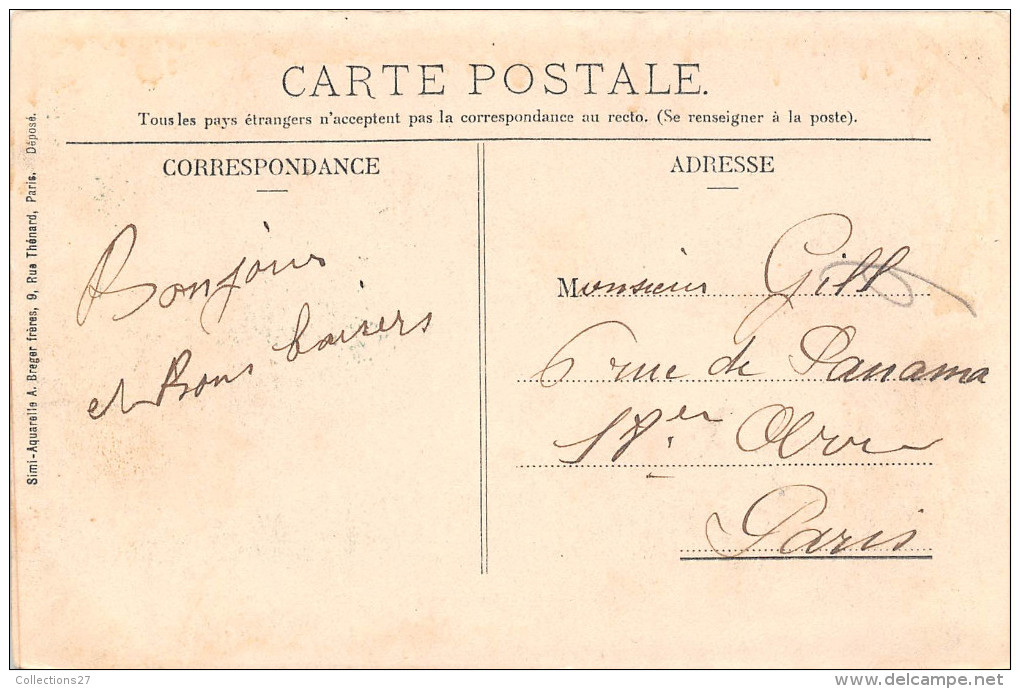 CARTE POSTALE.
Tous les pays étrangers n'acceptent pas la correspondance au recto. (Se renseigner à la poste).
CORRESPONDANCE
Bonjour
et Bons baisers
ADRESSE
Monsieur Gill
6 rue de Panama
18
Paris
Simi-Aquarelle A. Breger frères, 9, Rue Thénard, Paris. Déposé.
Collections27
http://www.delcampe.net